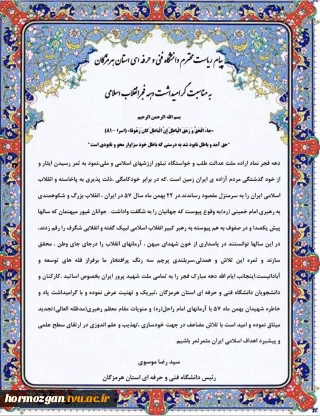 پیام ریاست محترم دانشگاه فنی و حرفه ای استان هرمزگان
به مناسبت گرامیداشت دهه فجر انقلاب اسلامی
بسم الله الرحمن الرحیم
«جاءَ الْحَقُّ وَ زَهَقَ الْباطِلُ إِنَّ الْباطِلَ كانَ زَهُوقًا» (اسرا -۸۱)
"حق آمد و باطل نابود شد به درستی که باطل خود سزاوار محو و نابودی است"
دهه فجر نماد اراده ملت عدالت طلب و خواستگاه تبلور ارزشهای اسلامی و ملی،نمود به ثمر رسیدن ایثار و
از خود گذشتگی مردم آزاده ی ایران زمین است .که در برابر خودکامگی ،ذلت پذیری به پاخاسته و انقلاب
اسلامی ایران را به سرمنزل مقصود رساندند.در ۲۲ بهمن ماه سال ۵۷ در ایران ، انقلاب بزرگ و شکوهمندی
به رهبری امام خمینی (ره)به وقوع پیوست که جهانیان را به شگفت واداشت . جوانان غیور میهنمان که سالها
پیش یکصدا و در صفوف به هم پیوسته به رهبر کبیر انقلاب اسلامی لبیک گفته و انقلابی شگرف را رقم زدند،
در این سالها توانستند در پاسداری از خون شهدای میهن ، آرمانهای انقلاب را درجای جای وطن ، محقق
سازند و ثمره این تلاش و همدلی،سربلندی پرچم سه رنگ پرافتخار ما برفراز قله های توسعه و
آبادانیست.اینجانب ایام الله دهه مبارک فجر را به تمامی ملت شهید پرور ایران بخصوص اساتید ،کارکنان و
دانشجویان دانشگاه فنی و حرفه ای استان هرمزگان ،تبریک و تهنیت عرض نموده و با گرامیداشت یاد و
خاطره شهیدان بهمن ماه ۵۷ با آرمانهای امام راحل(ره) و منویات مقام معظم رهبری(مدظله العالی)تجدید
میثاق نموده و امید است با تلاش مضاعف در جهت خودسازی ،تهذیب و علم اندوزی در ارتقای سطح علمی
و پیشبرد اهداف اسلامی ایران مثمر ثمر باشیم.
سید رضا موسوی
رئیس دانشگاه فنی و حرفه ای استان هرمزگان
hormozgan.tvu.ac.ir